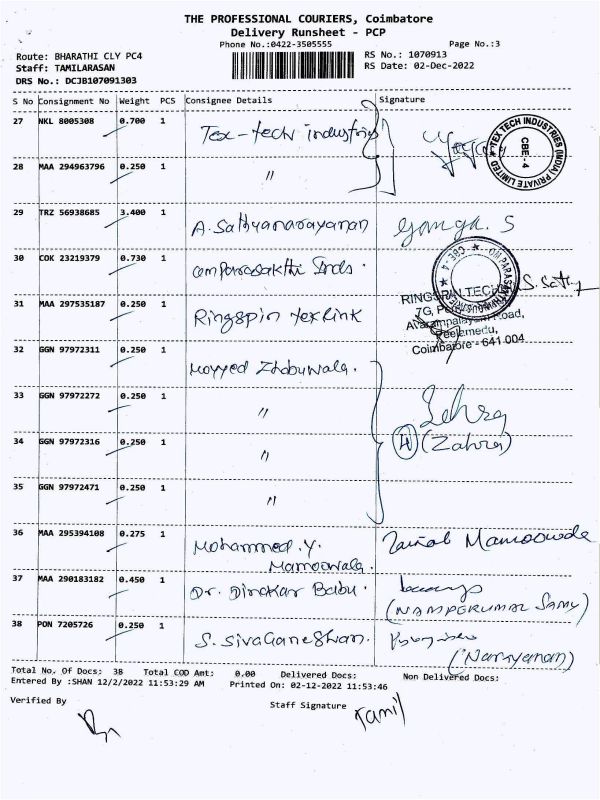 THE PROFESSIONAL COURIERS, Coimbatore
Delivery Runsheet - PCP
Phone No.:0422-3505555
Page No.:3
Route: BHARATHI CLY PC4
RS No.: 1070913
Staff: TAMILARASAN
RS Date: 02-Dec-2022
DRS No.: DCJB107091303
S No Consignment No Weight PCS Consignee Details Signature
27 NKL 8005308 0.700 1 Tex-tech industries
TEX TECH INDUSTRIES (INDIA) PRIVATE LIMITED
CBE - 4
28 MAA 294963796 0.250 1 〃
29 TRZ 56938685 3.400 1 A. Sathyanarayanan Ganga. S
30 COK 23219379 0.730 1 Omparasakthi Inds.
CBE - 4
31 MAA 297535187 0.250 1 Ringspin texlink
Peelamedu,
Coimbatore - 641 004
32 GGN 97972311 0.250 1 Moyyed Zhabuwala.
33 GGN 97972272 0.250 1 〃 Zahra
34 GGN 97972316 0.250 1 〃 4 (Zahra)
35 GGN 97972471 0.250 1 〃
36 MAA 295394108 0.275 1 Mohammed. Y. Mamoowala. Zainab Mamoowala
37 MAA 290183182 0.450 1 Dr. Dinakar Babu.
(NAMPERUMAL SAMY)
38 PON 7205726 0.250 1 S. Sivaganeshwan.
(Narayanan)
Total No. Of Docs: 38 Total COD Amt: 0.00 Delivered Docs: Non Delivered Docs:
Entered By :SHAN 12/2/2022 11:53:29 AM Printed On: 02-12-2022 11:53:46
Verified By
Staff Signature Tamil